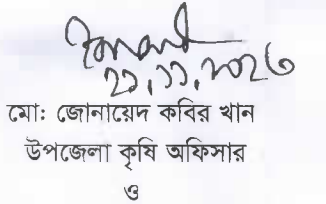 ২১.১১.২০২৩
মো: জোনায়েদ কবির খান
উপজেলা কৃষি অফিসার
ও